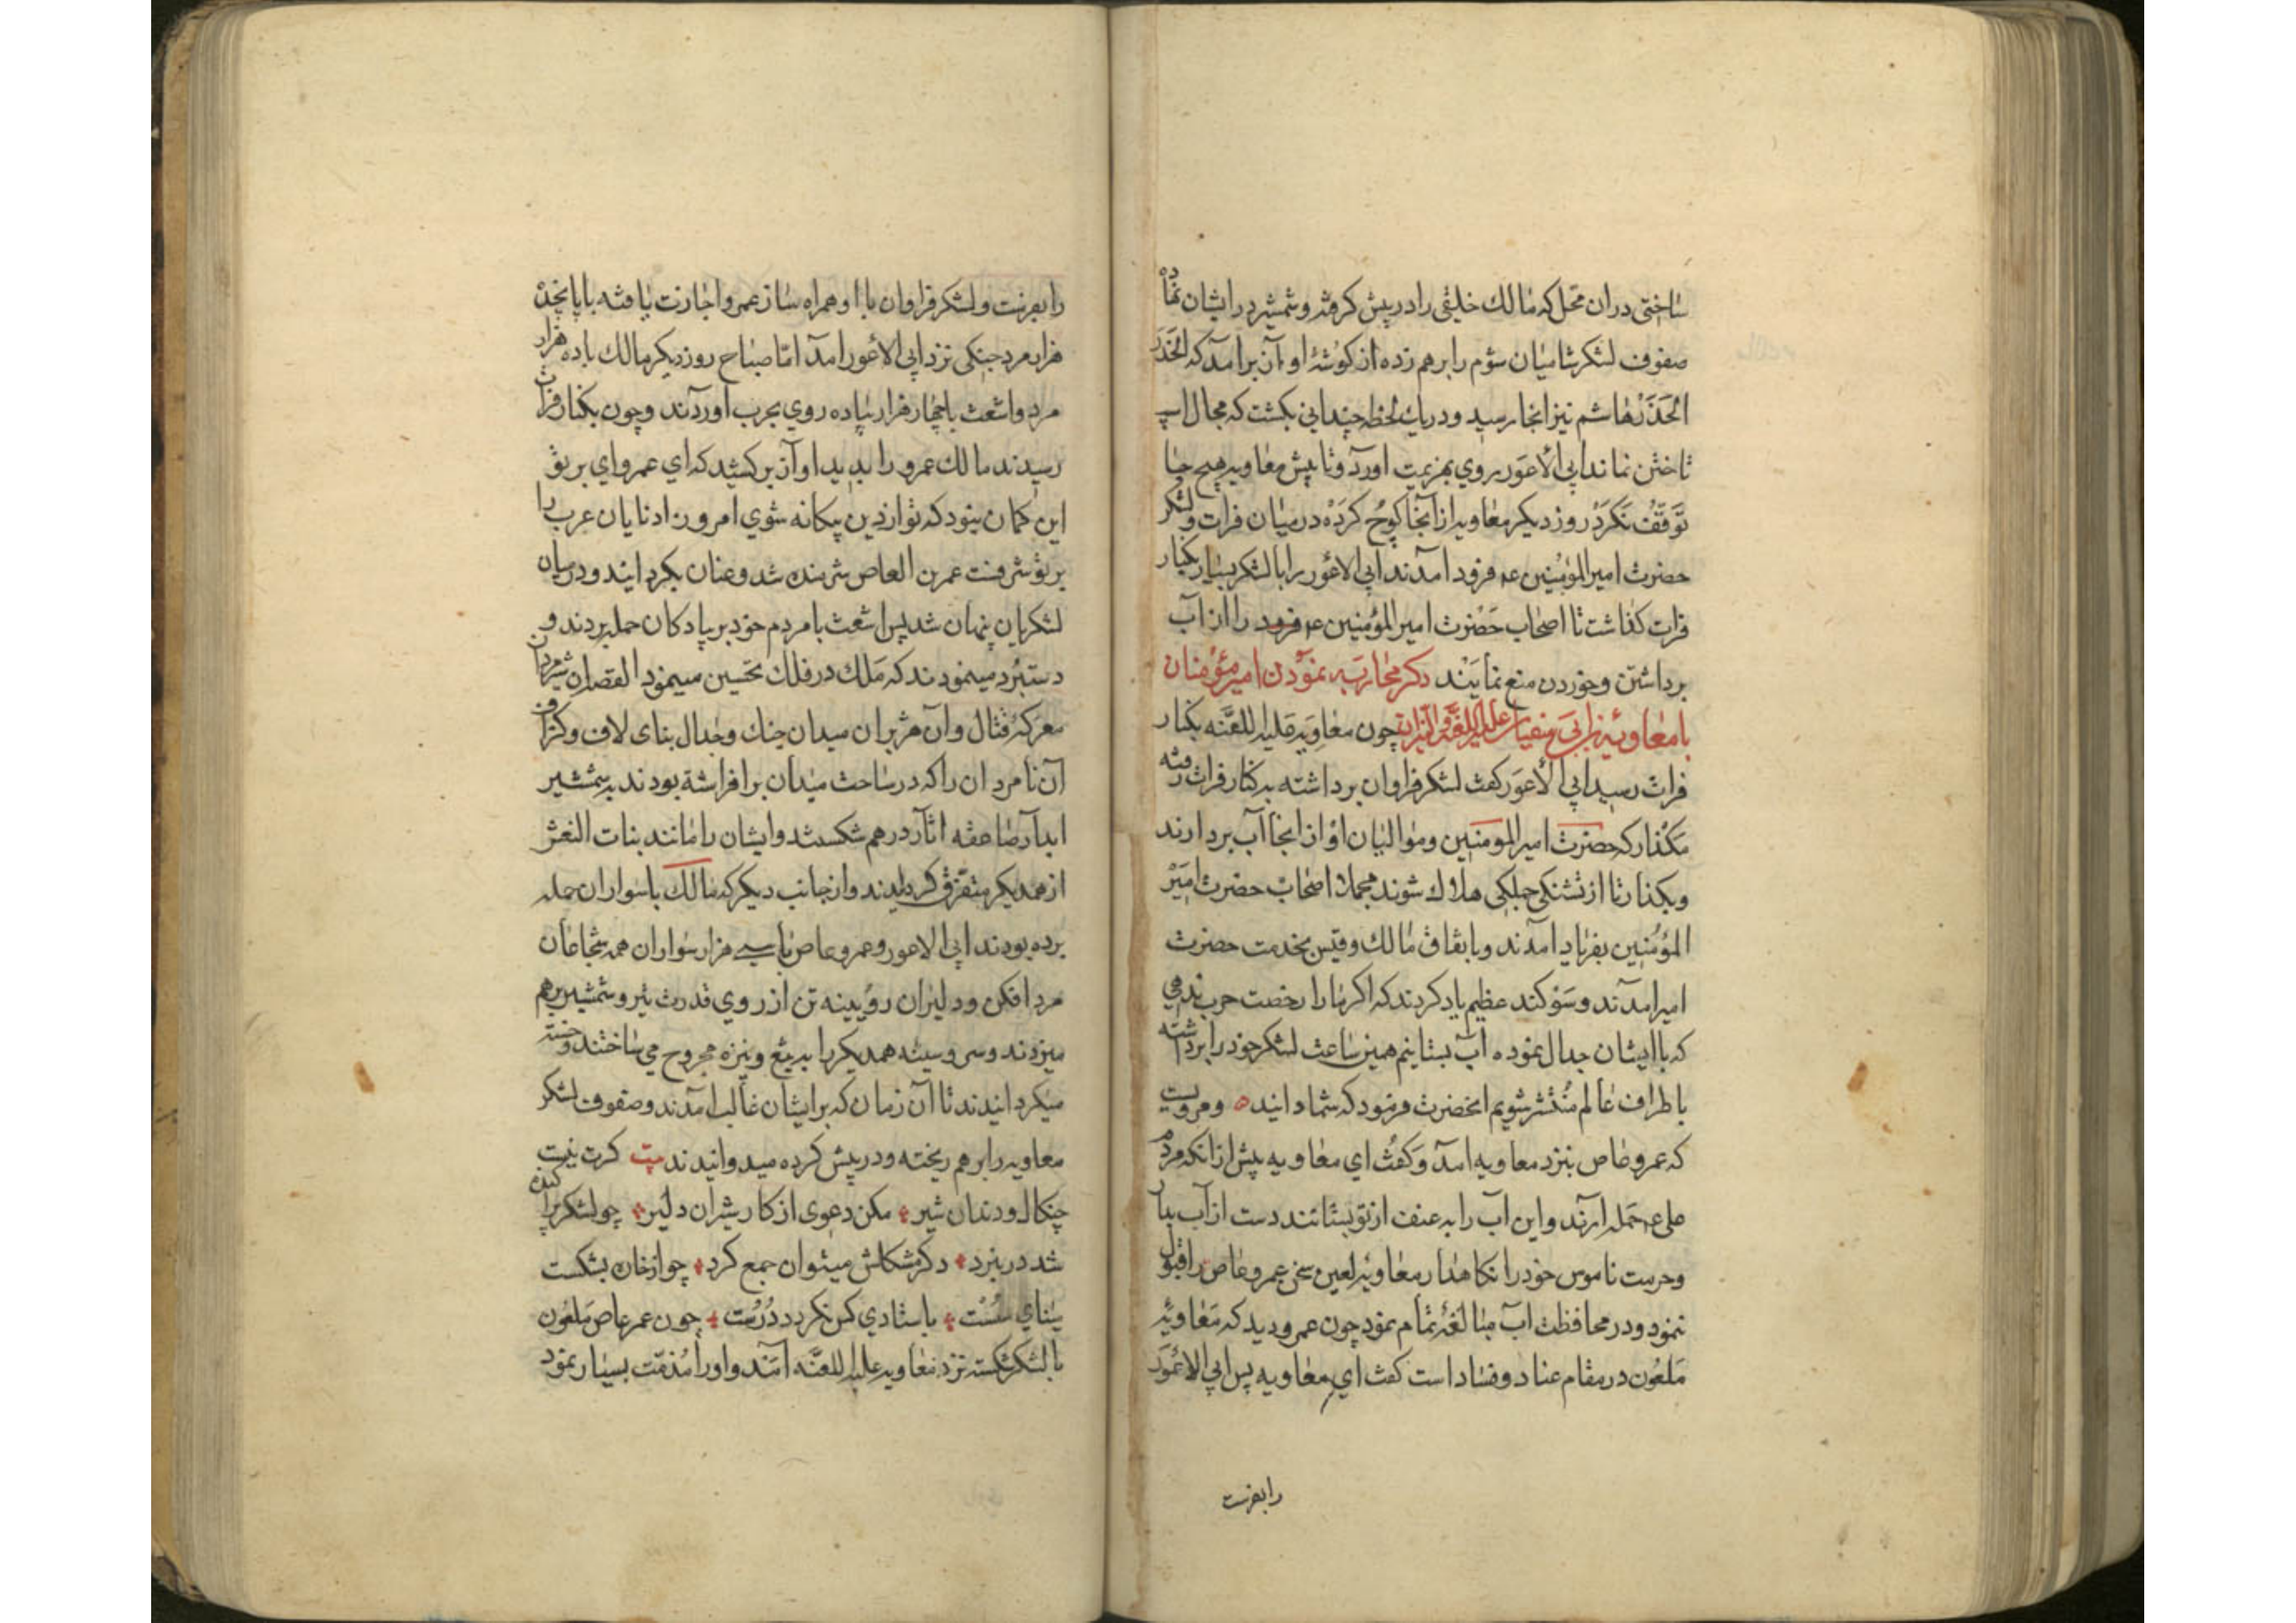 ساختی دران محل که مالك خلیفی را در پیش کرفته و شمشیر در ایشان نهاده
صفوف لشکر شامیان شوم را برهم زده از کوشۀ اواز برامد که الحَذَر
الحَذَر هاشم نیز انجا رسید و در یك لحظه چندانی بکشت که مجال اسپ
تاختن نماند ابی الاعور روی بهزیمت اورد و تا پیش معاویه هیچ جا
تَوَقَّفْ نَکَرَدْ روز دیکر معاویه از آنجا کوچ کَرَدْه در میان فرات و لشکر
حضرت امیرالمؤمنین عم فرود امدند ابی الاعور را با لشکر بسیار بکنار
فرات کذاشت تا اصحاب حَضْرت امیرالمؤمنین عم فرود را از آب
برداشتن و خوردن منع نمایَنْد ذکر محاربَه نمودن امیر مؤمنان
با معاویۀ بن ابی سفیان علیه اللعنة و النیران چون معاویَه علیه اللعنَه بکنار
فرات رسید ابی الاعوَر کفت لشکر فراوان برداشته به کنار فرات رفته
مَکْذار که حضرت امیرالمومنین و موالیان او از انجا آب بردارند
و بکذار تا از تشنکی جملکی هلاك شوند اصحاب حضرت امِیَرْ
المؤمنین بفریاد امدند و باتفاق مالك و قیس بخدمت حضرت
امیر امدند و سَوْکند عظیم یاد کردند که اکر ما را رخصت حرب ندهی
که با ایشان جدال نموده آب بستانیم همین ساعت لشکر خود را برداشته
باطراف عالم مُنْتَشر شویم انحضرت فرمود که شما دانید ه و مرویست
که عمرو عاص بنزد معاویه امد و کَفتْ ای معاویه پیش از انکه مردم
علی عم حَمله ارند و این آب را به عنف از تو بستانند دست از آب بدار
و حرمت ناموس خود را نکاهدار معاویۀ لعین سخن عمرو عاص را قبول
ننمود و در محافظت اب مبالغۀ تمام نمود چون عمرو دید که مَعاویۀ
مَلعُون در مقام عناد و فساد است کفت ای معاویه پس ابی الاعوَر
را بفرست
را بفرست و لشکر فراوان با او همراه ساز عمرو اجازت یافته با پانجده
هزار مرد جنکی نزد ابی الاعور امد امّا صباح روز دیکر مالك با ده هزار
مرد و اشعث با چهار هزار پیاده روی بحرب اوردند و چون بکنار فرات
رسیدند مالك عمرو را بدید اواز برکشید که ای عمرو ای بریق
این کمان نبود که تو از دین بیکانه شوی امروز دانایان عرب را
عمرن العاص شرمنده شد و عنان بکردانید و در میان
لشکریان پنهان شد پس اشعث با مردم خود بر پیادکان حمله بردند و
دستبُرد مینمودند که مَلك در فلك تحسین مینمود القصه ان شیرمردان
معرکۀ قتال و آن هژبران میدان جنك و جدال بنای لاف و کزاف
آن نامردان را که در ساحت میدان برافراشته بودند به شمشیر
ابدار صاعقه اثار درهم شکستند و ایشان را مانند بنات النعش
از همدیکر متفرّق کردانیدند و از جانب دیکر که مالك با سواران حمله
برده بودند ابی الاعور و عمرو عاص با سی هزار سواران همه شجاعان
مرد افکن و دلیران رؤیینه تن از روی قدرت تیر و شمشیر برهم
میزدند و سر و سینه همدیکر را به تیغ و نیزه مجروح می ساختند و خسته
میکردانیدند تا آن زمان که بر ایشان غالب امدند و صفوف لشکر
معاویه را برهم ریخته و در پیش کرده میدوانیدند بیت کرت نیست
چنکال و دندان شیر مکن دعوی از کار شیران دلیر چو لشکر پراکنده
شد در نبرد دکر مشکلش میتوان جمع کرد چو از خان بشکست
بینای سُسْت باستادی کس نکردد دُرُست چون عمر عاص مَلعُون
با لشکر شکسته نزد معاویه علیه اللعنَه امَند و او را مُذمّت بسیار نمود